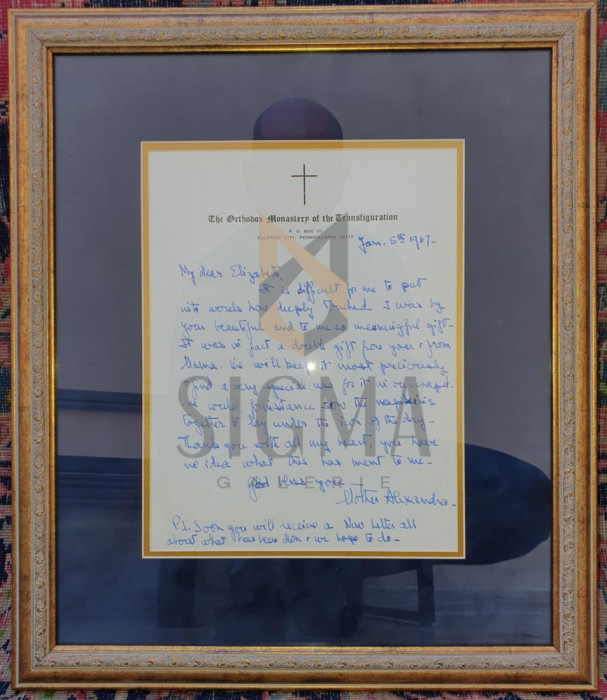 The Orthodox Monastery of the Transfiguration
P. O. BOX
ELLWOOD CITY, PENNSYLVANIA
Jan. 5th
My dear Elizabeth,
it is difficult for me to put
into words how deeply touched I was by
your beautiful and to me so meaningful gift-
It was in fact a double gift from you + from
We will keep it most preciously
find a very special use for it in our chapel.
together to lay under the icon of the day-
Thank you with all my heart, you have
no idea what this has ment to me-
God bless you
Mother Alexandra-
P.S. Soon you will receive a New Letter all
about what has been don + we hope to do-
SIGMA
GALERIE